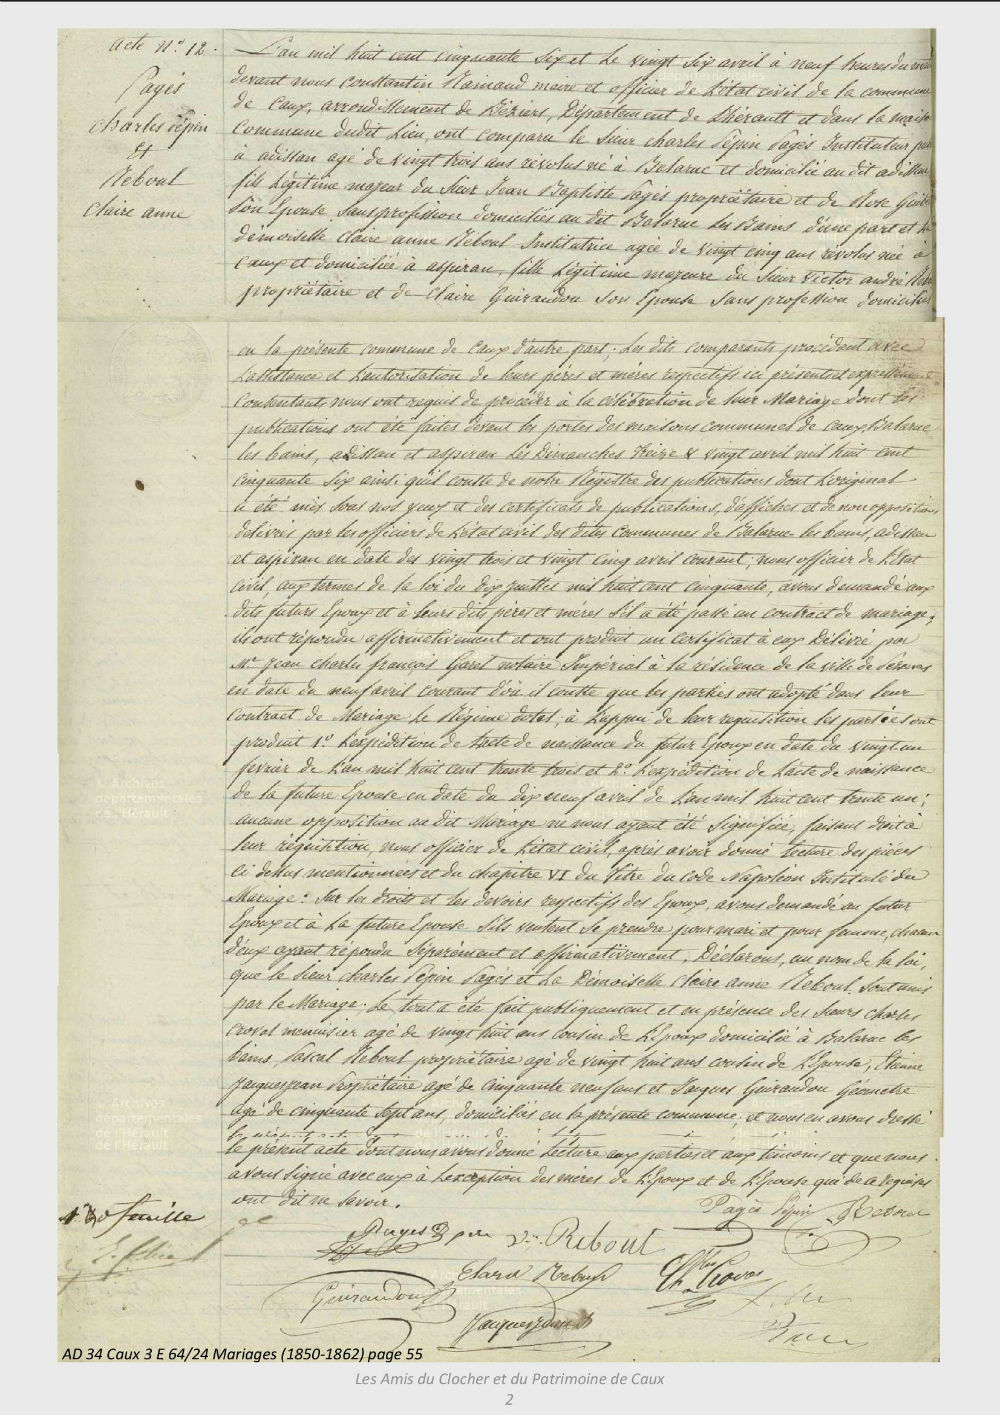 acte n.º 12.
Pagès
charles pépin
et
Reboul
Claire anne
L'an mil huit cent cinquante Six et le vingt Six avril à neuf heures du
devant nous constantin Rainaud maire et officier de L'état civil de la commune
de Caux, arrondissement de Béziers, Département de L'hérault et dans la maison
Commune dudit Lieu, ont comparu le Sieur charles pépin Pagès Instituteur
à adissan agé de vingt trois ans révolus né à Balaruc et domicilié au dit adissan
fils Légitime majeur du Sieur Jean Baptiste Pagès propriétaire et de Rose
Son Epouse Sans profession domiciliés au dit Balaruc les Bains d'une part et la
démoiselle Claire anne Reboul Institutrice agée de vingt cinq ans révolus née à
Caux et domiciliée à aspiran, fille Légitime majeure du Sieur Victor andré Reboul
propriétaire et de Claire Guiraudou Son Epouse Sans profession domiciliés
en la présente commune de Caux d'autre part; Les dits comparants procédant avec
L'assistance et L'autorisation de leurs pères et mères respectifs ici présents et
Consentants, nous ont requis de procéder à la célébration de leur Mariage dont les
publications ont été faites devant les portes des maisons communes de Caux, Balaruc
les bains, adissan et aspiran Les Dimanches Treize & vingt avril mil huit cent
cinquante Six ainsi qu'il conste de notre Régistre des publications dont L'original
a été mis Sous nos yeux et des certificats de publications, d'affiches et de non opposition
délivrés par les officiers de L'état civil des dites Communes de Balaruc les bains, adissan
et aspiran en date des vingt trois et vingt cinq avril courant; nous officier de L'Etat
civil, aux termes de la loi du Dix juillet mil huit cent cinquante, avons demandé aux
dits futurs Epoux et à leurs dits pères et mères S'il a été passé un contract de mariage;
ils ont répondu affirmativement et ont produit un Certificat à eux Délivré par
Mr. Jean charles françois Garel notaire Impérial à la résidence de la ville de Pézenas
en date du neuf avril courant d'où il conste que les parties ont adopté dans leur
Contract de Mariage le Régime dotal; à L'appui de leur requisition les parties ont
produit 1.º L'expédition de L'acte de naissance du futur Epoux en date du vingt un
fevrier de L'an mil huit cent trente trois et 2.º L'expédition de L'acte de naissance
de la future Epouse en date du dix neuf avril de L'an mil huit cent trente un;
aucune opposition au dit Mariage ne nous ayant été Signifiée, faisant droit à
leur réquisition, nous officier de L'état civil, après avoir donné lecture des pièces
ci dessus mentionnées et du chapitre VI du Titre du Code Napoléon Intitulé du
Mariage: Sur les droits et les devoirs respectifs des Epoux, avons demandé au futur
Epoux et à La future Epouse S'ils veulent Se prendre pour mari et pour femme, chacun
d'eux ayant répondu Séparément et affirmativement, Déclarons, au nom de la loi,
que le Sieur charles Pépin Pagès et La Démoiselle Claire anne Reboul Sont unis
par le Mariage. Le tout a été fait publiquement et en présence des Sieurs charles
Crovot menuisier agé de vingt huit ans cousin de L'Epoux domicilié à Balaruc les
bains, Pascal Reboul propriétaire agé de vingt huit ans cousin de L'Epouse, Etienne
Jacquesjean Propriétaire agé de Cinquante neuf ans et Jacques Guiraudou Géomètre
agé de cinquante Sept ans, domiciliés en la présente commune; et nous en avons dressé
le présent acte dont nous avons donné Lecture aux parties et aux témoins et que nous
avons Signé avec eux à L'exception des mères de L'Epoux et de L'Epouse qui de ce requises
ont dit ne Savoir.
Pagès Pépin Reboul
feuille
Pages père Reboul
Reboul
Guiraudou
Jacquesjean
AD 34 Caux 3 E 64/24 Mariages (1850-1862) page 55
Les Amis du Clocher et du Patrimoine de Caux
2
Archives
départementales
de l'Hérault